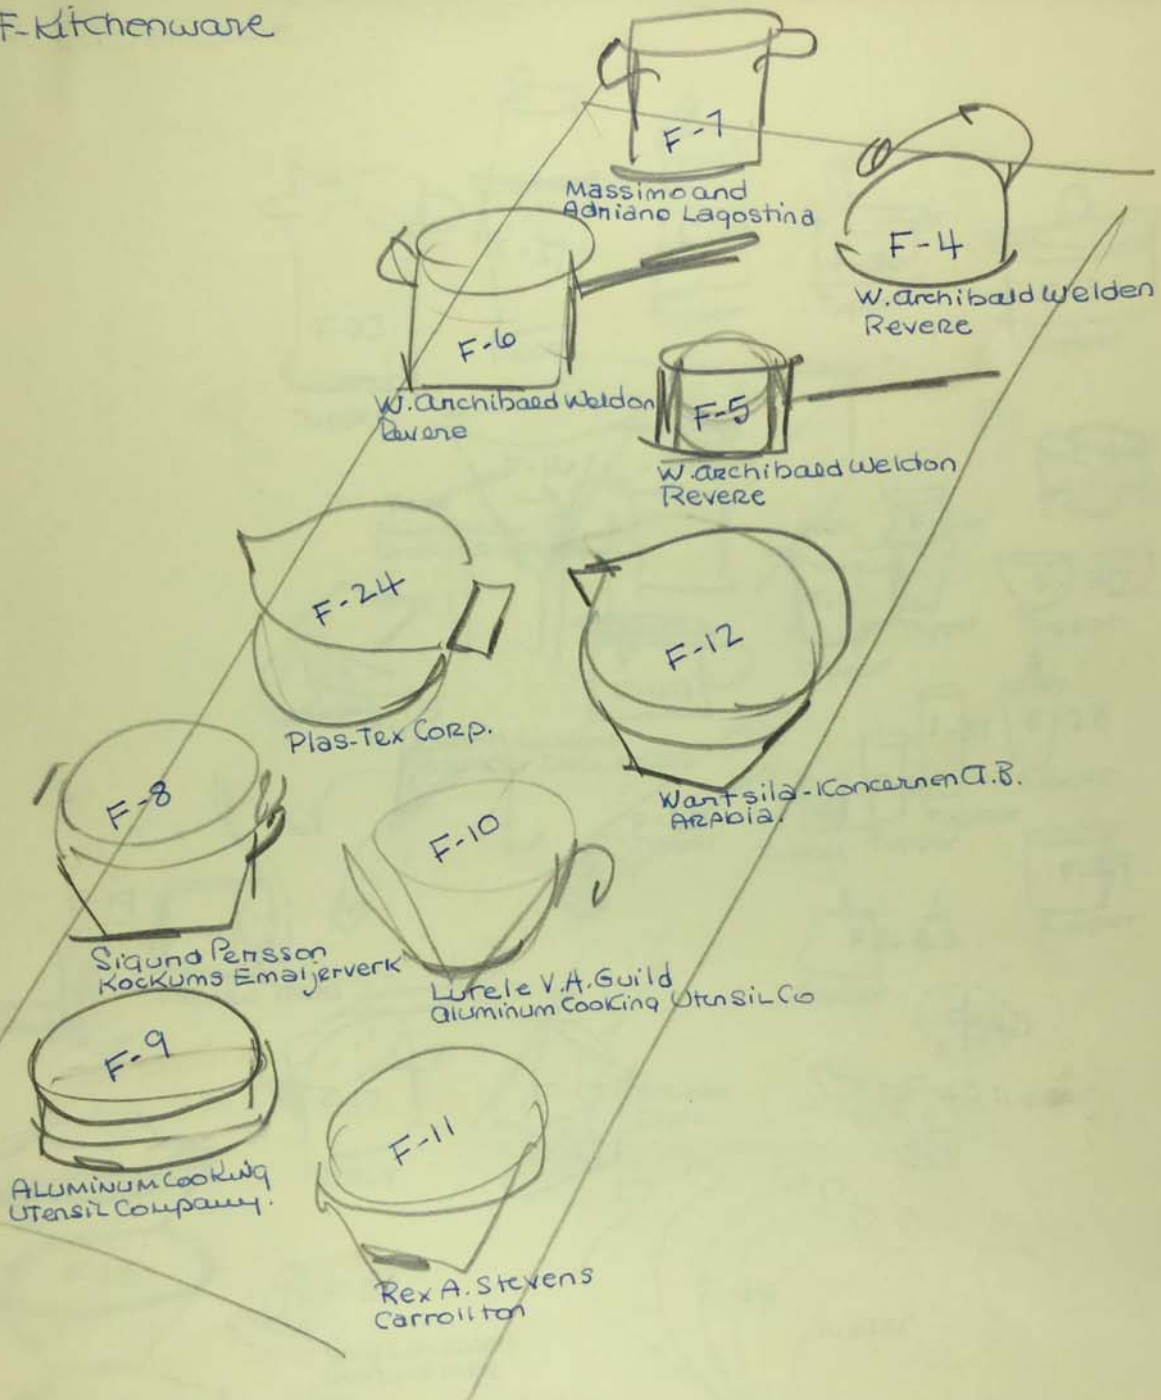 F-Kitchenware
F-7
Massimo and
Adriano Lagostina
F-4
W. Archibald Welden
Revere
F-6
W. Archibald Weldon
Revere
F-5
W. Archibald Weldon
Revere
F-24
Plas-Tex Corp.
F-12
Wartsila-Koncernen A.B.
Arabia.
F-8
Sigund Persson
Kockums Emaljerverk
F-10
Lurele V.A. Guild
Aluminum Cooking Utensil Co
F-9
Aluminum Cooking
Utensil Company.
F-11
Rex A. Stevens
Carrollton